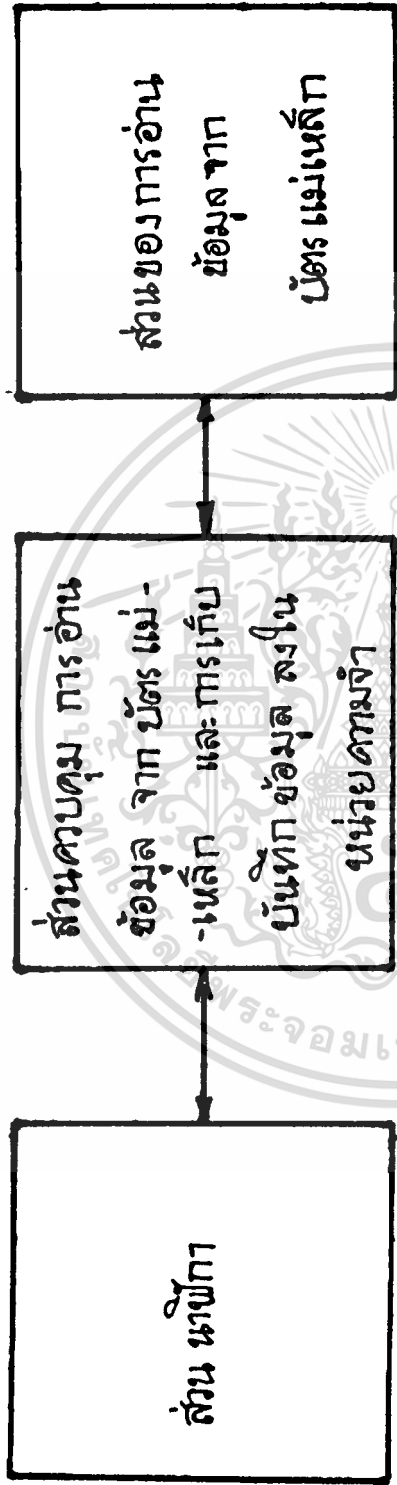 ส่วน นาฬิกา
ส่วนควบคุม การอ่าน
ข้อมูล จาก บัตร แม่ -
-เหล็ก และการเก็บ
บันทึก ข้อมูล ลงใน
หน่วยความจำ
ส่วนของการอ่าน
ข้อมูล จาก
บัตร แม่เหล็ก
พระจอมเ